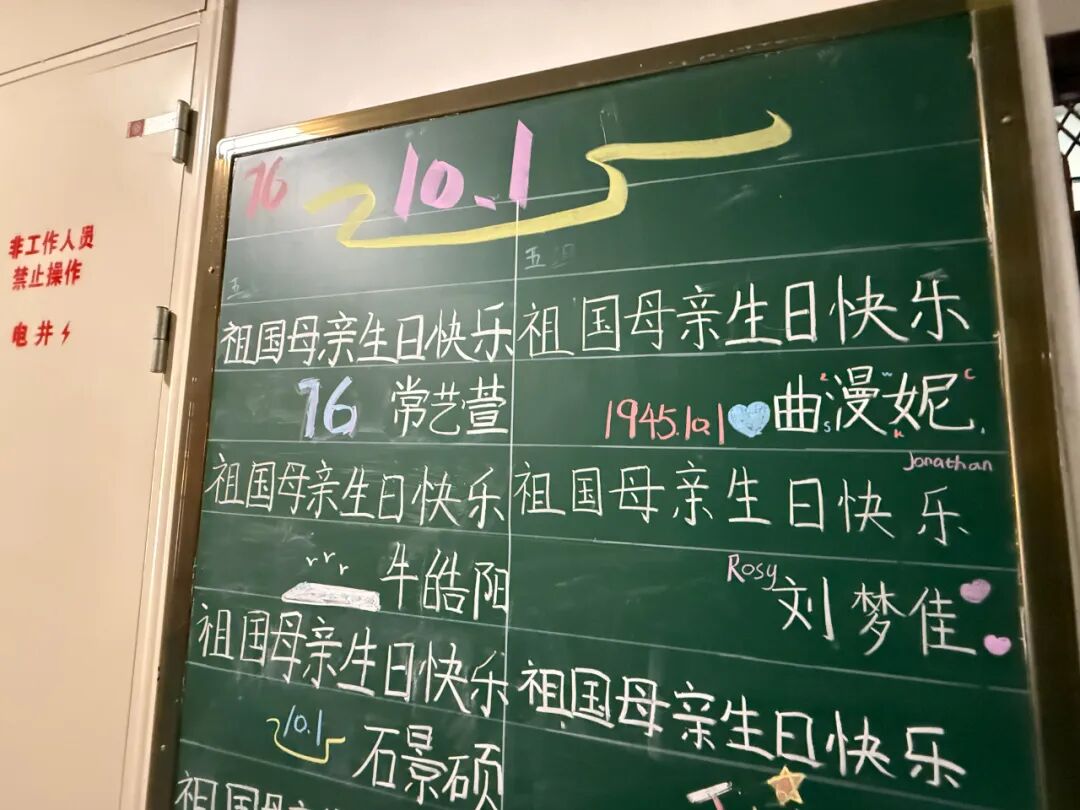 非工作人员
禁止操作
电井
76
10.1
五
五组
祖国母亲生日快乐
76 常艺萱
祖国母亲生日快乐
牛皓阳
祖国母亲生日快乐
10.1
石景硕
祖国母亲
祖国母亲生日快乐
1945.10.1 曲漫妮
祖国母亲生日快乐
Jonathan
Rosy
刘梦佳
祖国母亲生日快乐